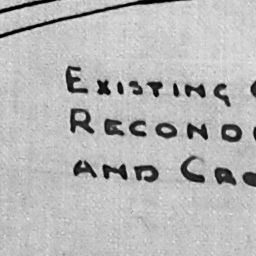 EXISTING
RECONO
AND CRO